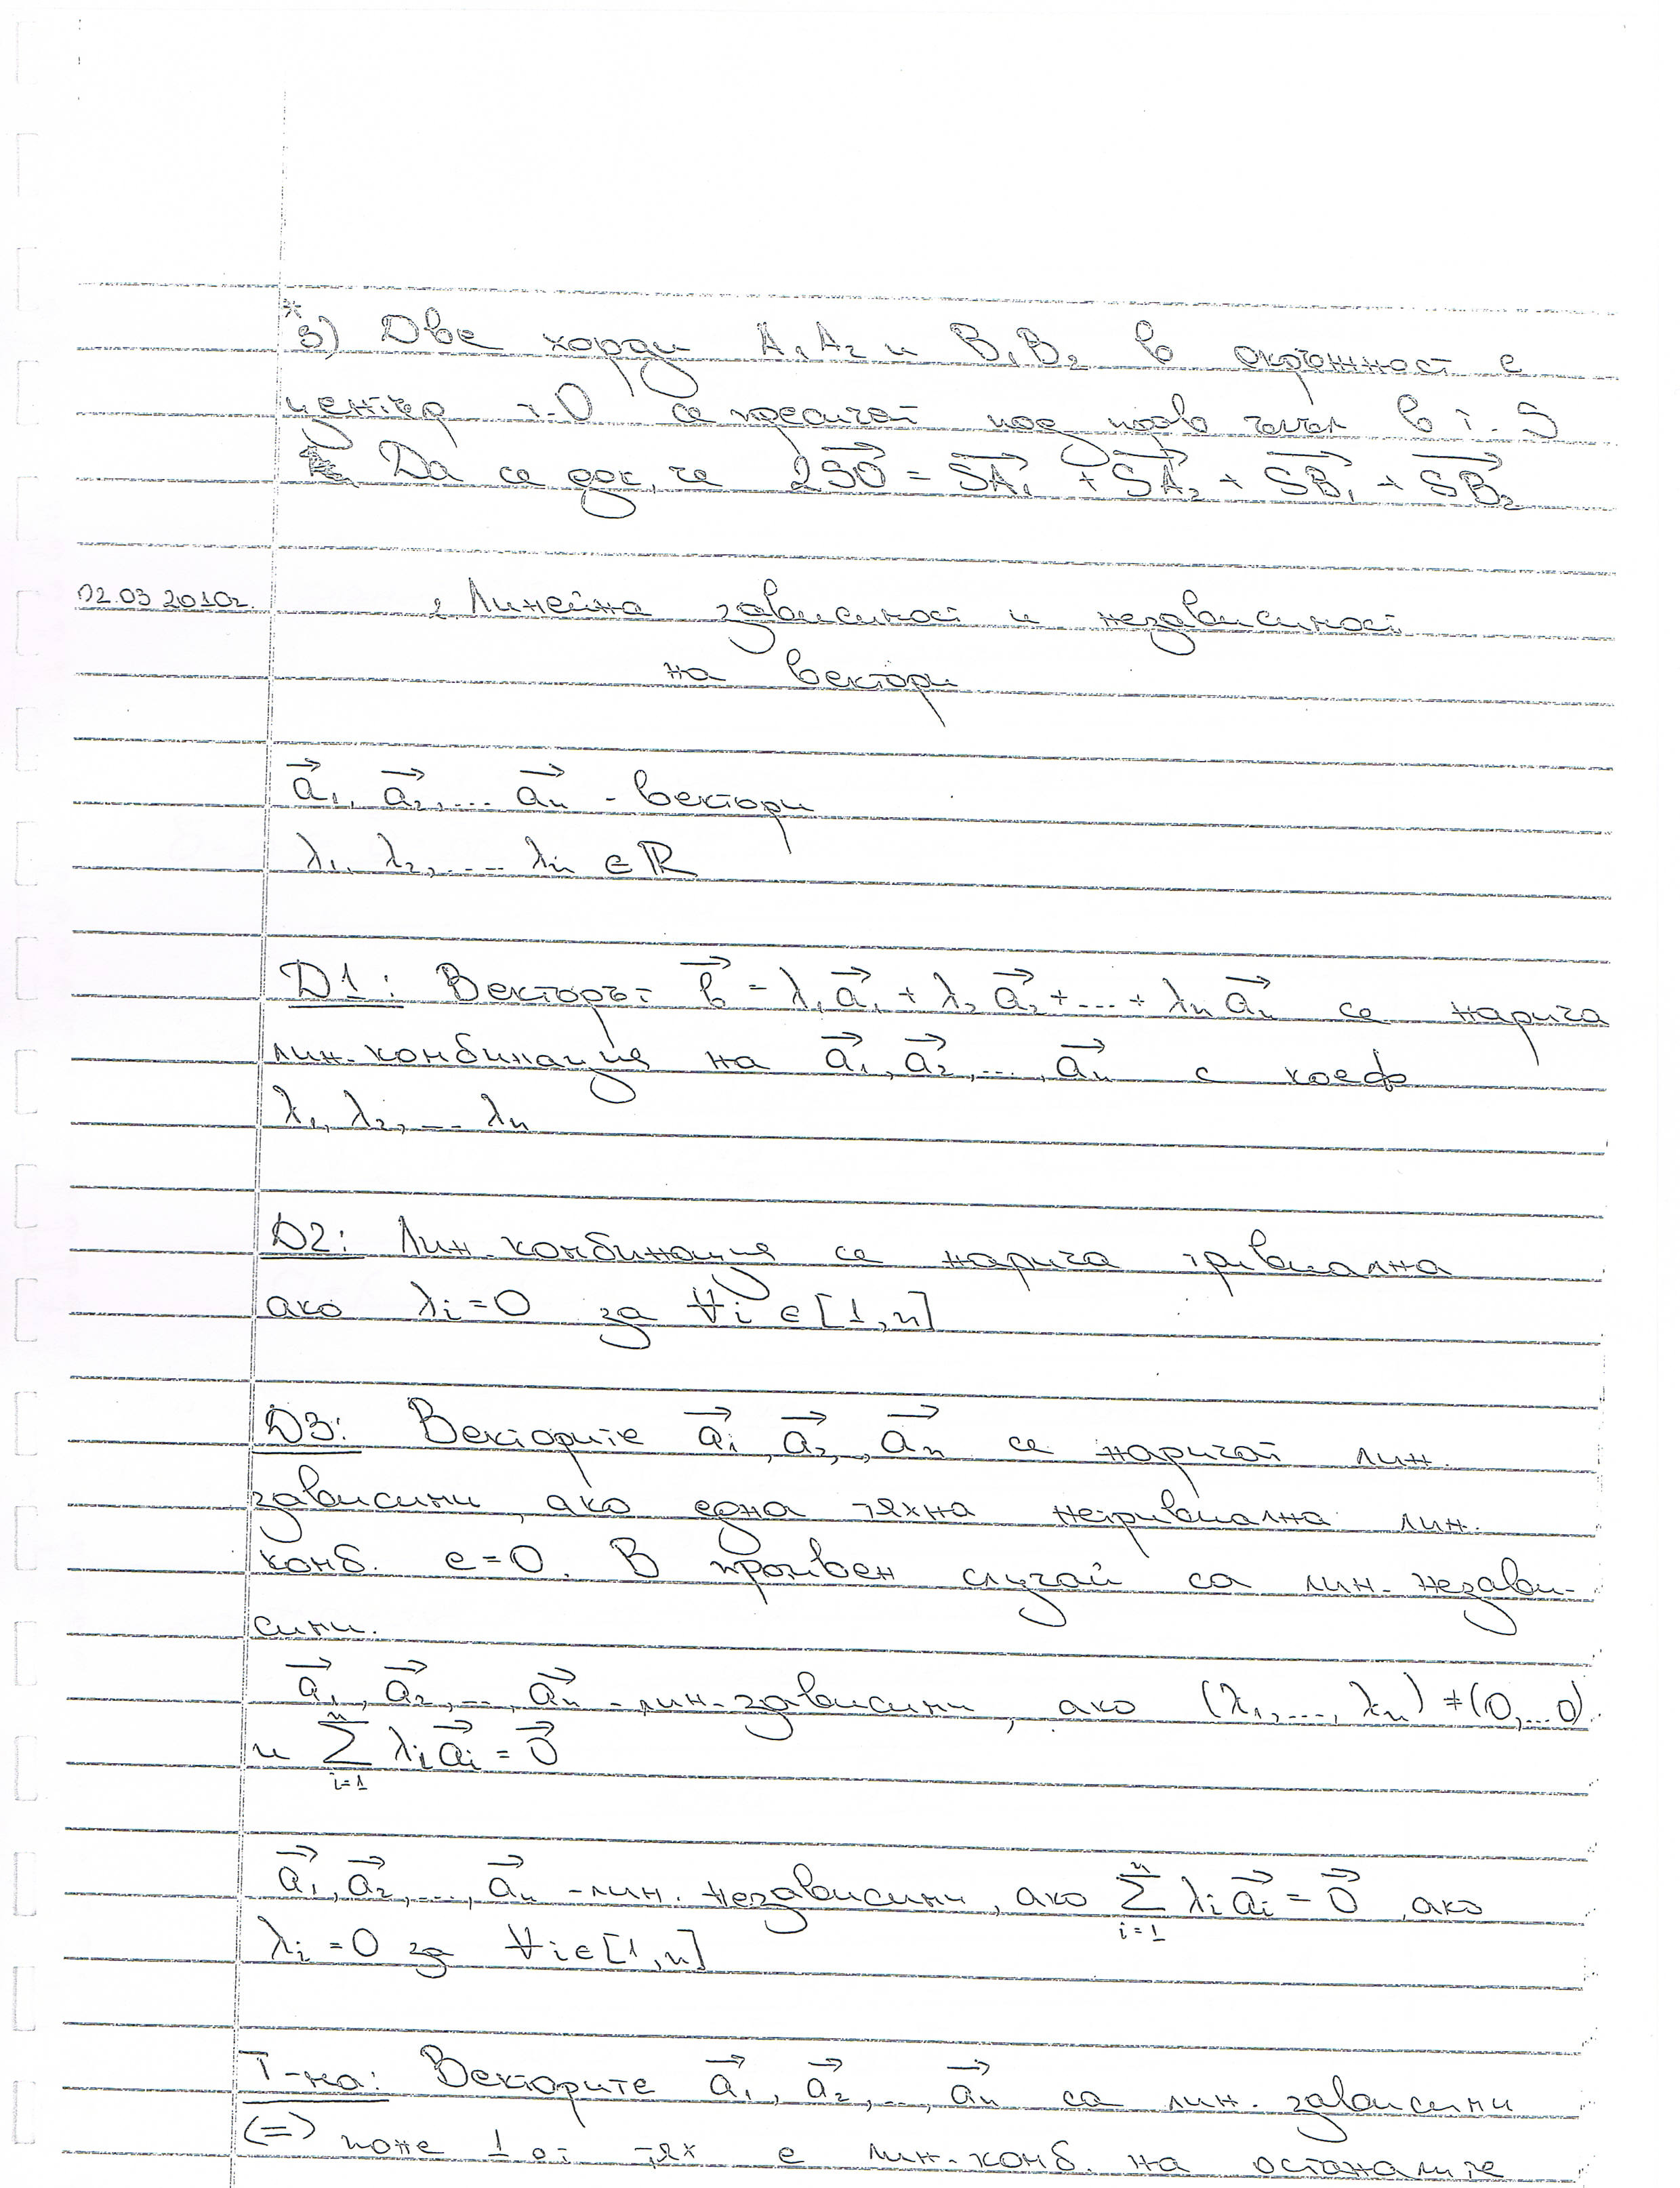 *3) Две хорди A₁A₂ и B₁B₂ в окръжност с
център т.О се пресичат под прав ъгъл в т. S
Да се док, че 2SO→ = SA₁→ + SA₂→ + SB₁→ + SB₂→
02.03 2010г. Линейна зависимост и независимост
на вектори
a₁→, a₂→,... aₙ→ - вектори
λ₁, λ₂,... λₙ ∈ ℝ
D1: Векторът b→ = λ₁a₁→ + λ₂a₂→ + ... + λₙaₙ→ се нарича
лин. комбинация на a₁→, a₂→, ..., aₙ→ с коеф
λ₁, λ₂, ... λₙ
D2: Лин. комбинация се нарича тривиална
ако λᵢ = 0 за ∀i ∈ [1, n]
D3: Векторите a₁→, a₂→,.., aₙ→ се наричат лин.
зависими, ако една тяхна нетривиална лин.
комб. е = 0. В противен случай са лин. незави-
сими.
a₁→, a₂→, .., aₙ→ - лин. зависими, ако (λ₁, ..., λₙ) ≠ (0, ... 0)
и ∑ᵢ₌₁ⁿ λᵢaᵢ→ = 0→
a₁→, a₂→, ..., aₙ→ - лин. независими, ако ∑ᵢ₌₁ⁿ λᵢaᵢ→ = 0→, ако
λᵢ = 0 за ∀i ∈ [1, n]
Т-ма: Векторите a₁→, a₂→, .., aₙ→ са лин. зависими
(=) поне 1 от тях е лин. комб. на останалите